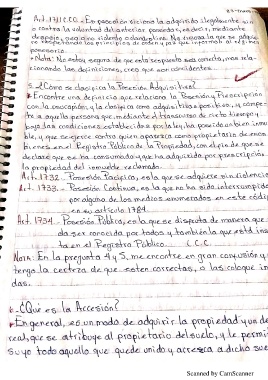 Art. 1791 C.C.G. En posesión viciosa la adquirida ilegalmente sin
o contra la voluntad del anterior poseedor, es decir, mediante
despojo, posesión violenta o clandestina.
posesorio.
Nota: No estoy segura de que esta respuesta sea correcta, mas rela-
cionando las definiciones, creo que son coincidentes.
5.- ¿Cómo se clasifica la Posesión Adquisitiva?
Encontre una definición que relaciona la Posesión y Prescripción
con la usucapión, y la clasifica como adquisitiva o positiva, y compe-
te a aquella persona que, mediante el transcurso de cierto tiempo y
bajo las condiciones establecidas por la ley, ha poseido un bien inmue-
ble, y que se ejerce contra quien aparezca como propietario de esos
bienes en el Registro Público de la Propiedad, con el fin de que se
declare que se ha consumado y que ha adquirido, por prescripción
la propiedad del inmueble reclamado.
Art. 1732.- Posesión Pacífica, es la que se adquiere sin violencia
Art. 1733.- Posesión Continua, es la que no ha sido interrumpida
por alguno de los medios enumerados en este códi-
go en su artículo 1784.
Art. 1734.- Posesión Pública, es la que se disfruta de manera que
da ser conocida por todos y también la que está ins
ta en el Registro Público. C.C.C
Nota: En la pregunta 4 y 5, me encontre en gran confusión y
tenga la certeza de que esten correctas, o las coloque in
das.
6.- ¿Qué es la Accesión?
En general, es un modo de adquirir la propiedad y un de
real, que se atribuye al propietario del suelo, y le permi
suyo todo aquello que quede unido y accesa a dicho sue
Scanned by CamScanner